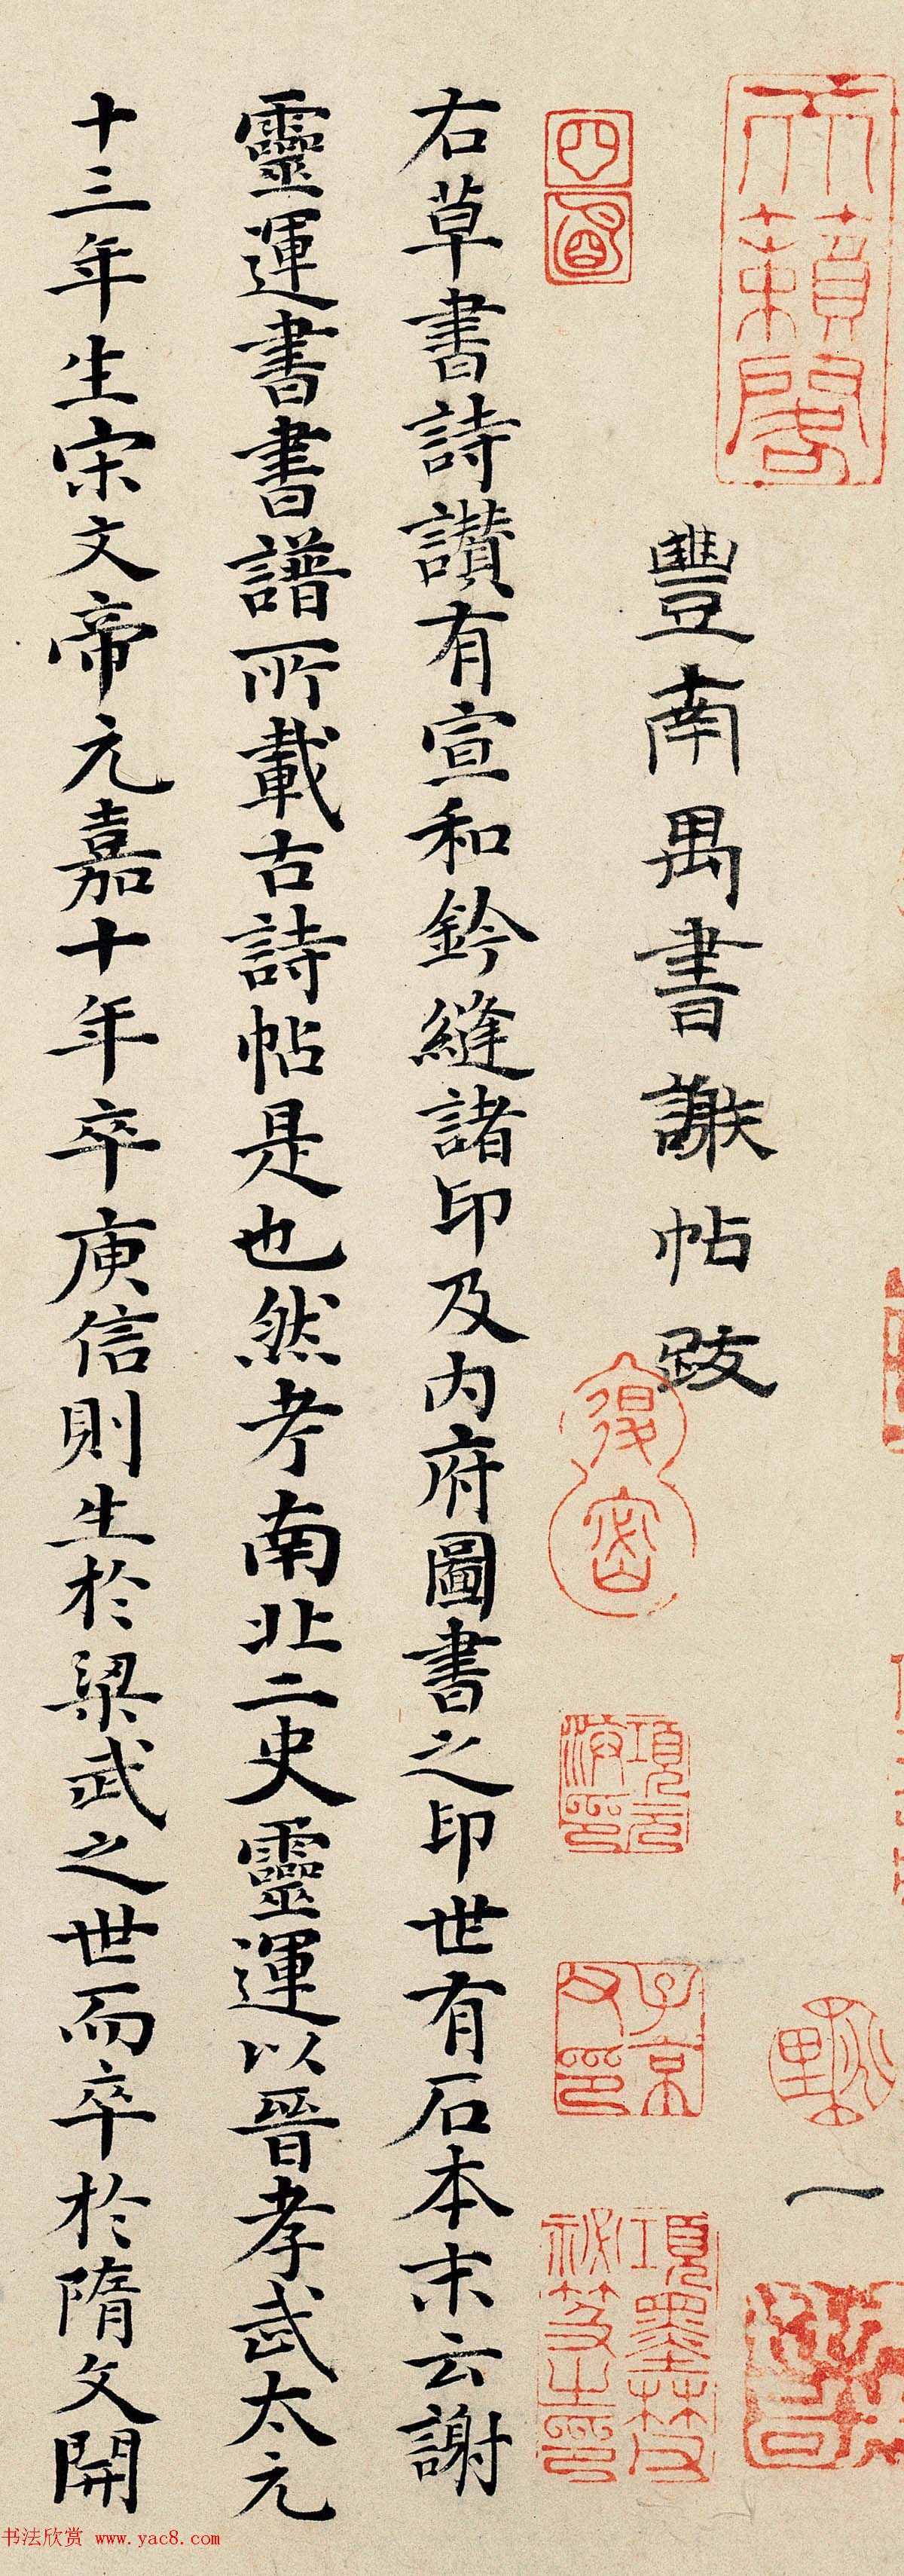 天籟閣
一
豐南禺書謝帖跋
項元汴印
子京父印
項墨林父祕笈之印
右草書詩讚有宣和鈐縫諸印及內府圖書之印世有石本末云謝
靈運書書譜所載古詩帖是也然考南北二史靈運以晉孝武太元
十三年生宋文帝元嘉十年卒庾信則生於梁武之世而卒於隋文開
书法欣赏 www.yac8.com